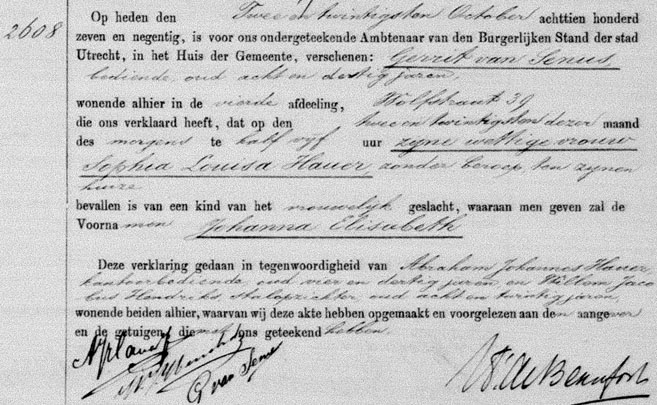 2608
Op heden den Twee en twintigsten October achttien honderd
zeven en negentig, is voor ons ondergeteekende Ambtenaar van den Burgerlijken Stand der stad
Utrecht, in het Huis der Gemeente, verschenen: Gerrit van Senus,
bediende, oud acht en dertig jaren,
wonende alhier in de vierde afdeeling, Wolfstraat 39
die ons verklaard heeft, dat op den twee en twintigsten dezer maand
des morgens te half vijf uur zijne wettige vrouw
Sophia Louisa Hauer, zonder beroep, ten zijnen
huize
bevallen is van een kind van het vrouwelijk geslacht, waaraan men geven zal de
Voornamen Johanna Elisabeth
Deze verklaring gedaan in tegenwoordigheid van Abraham Johannes Hauer,
kantoorbediende oud vier en dertig jaren, en Willem Jaco
bus Hendriks, stalopzichter oud acht en twintig jaren,
wonende beiden alhier, waarvan wij deze akte hebben opgemaakt en voorgelezen aan den aangever
en de getuigen, die met ons geteekend hebben.
G van Senus
de Beaufort